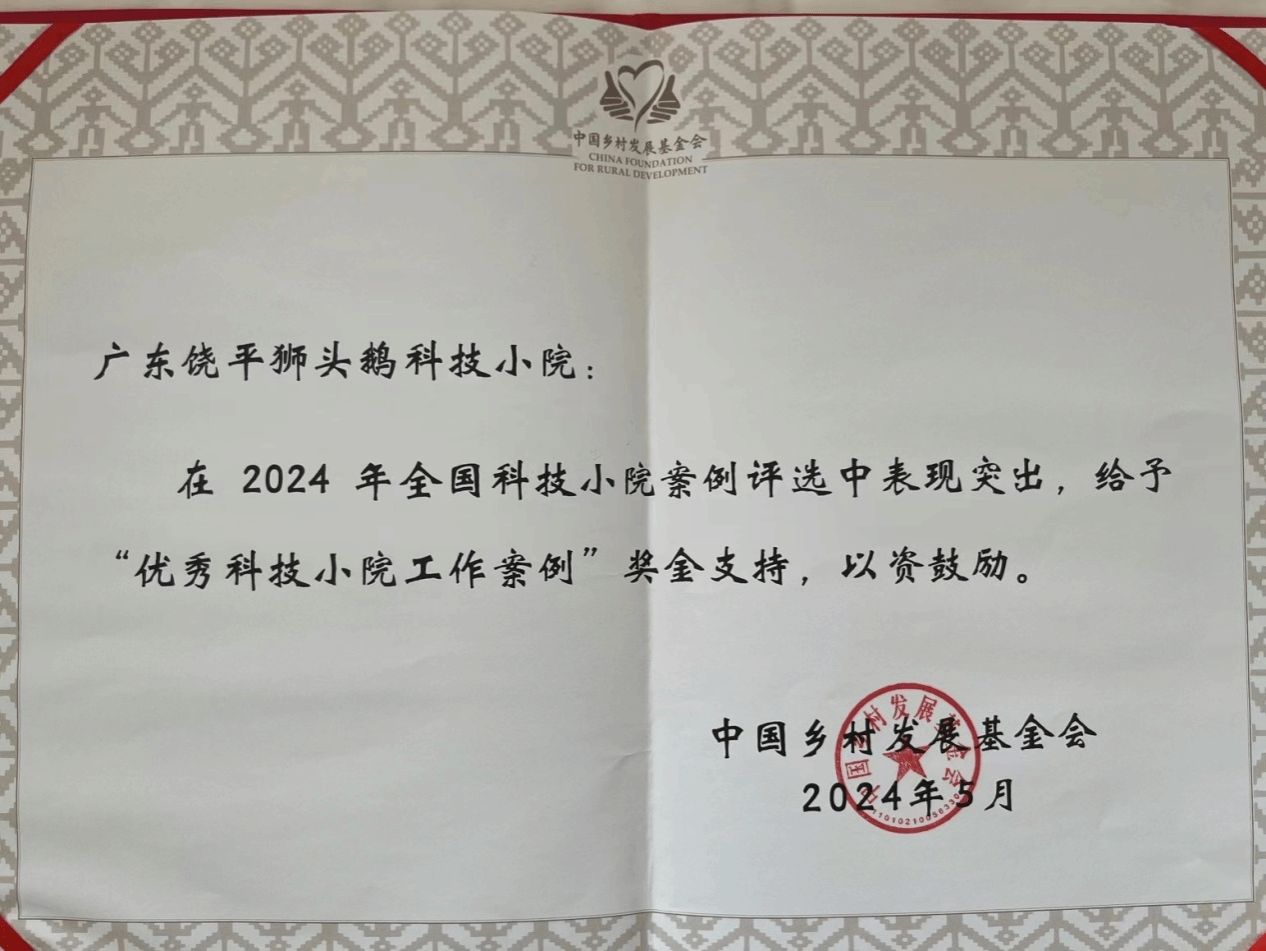 中国乡村发展基金会
CHINA FOUNDATION
FOR RURAL DEVELOPMENT
广东饶平狮头鹅科技小院：
在 2024 年全国科技小院案例评选中表现突出，给予
“优秀科技小院工作案例”奖金支持，以资鼓励。
中国乡村发展基金会
2024年5月
中国乡村发展基金会